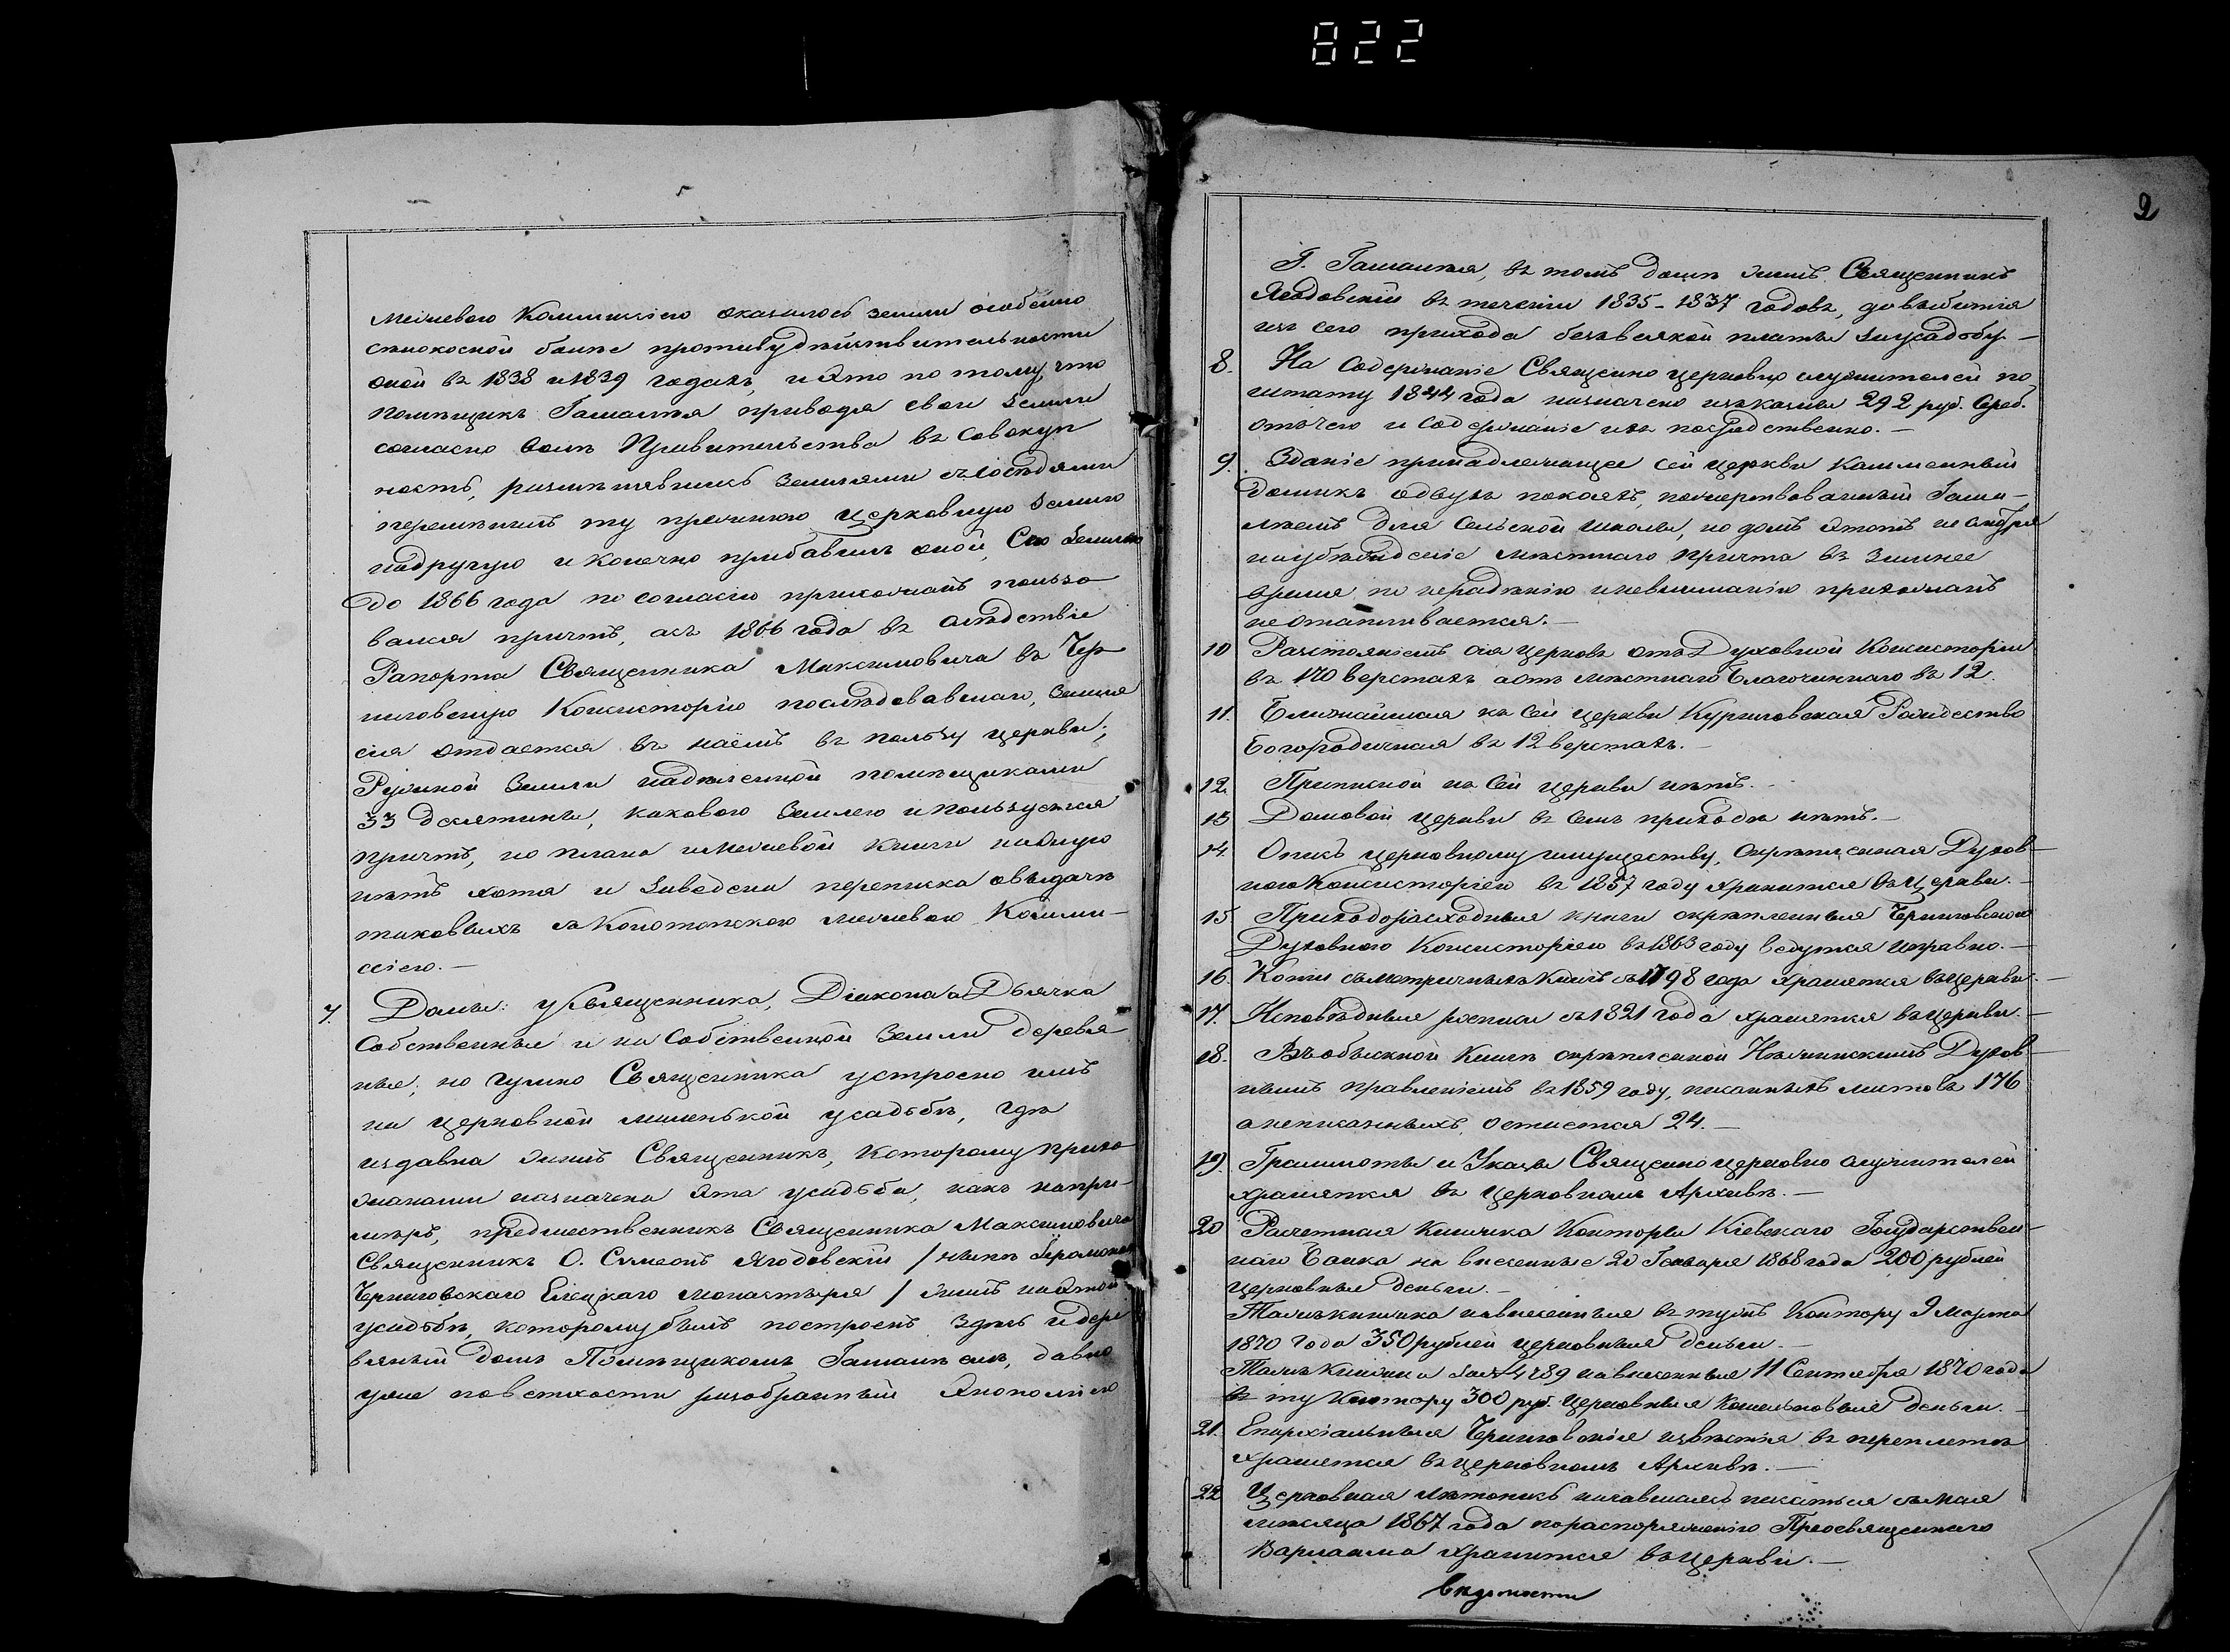 822
2
Межевою Коммиссіею оказалось земли особенно
сѣнокосной болѣе противу дѣйствительности
оной въ 1838 и 1839 годахъ, и это по тому, что
помѣщикъ Гамалѣя приводя свои земли
согласно волѣ Правительства въ совокуп
ность, размѣнявшись землями съ сосѣдями
перемѣнилъ ту прежнюю церковную землю
на другую и конечно прибавилъ оной, Сею землею
до 1866 года по согласію прихожанъ пользо
вался причтъ, а съ 1866 года въ слѣдствіе
Рапорта Священника Максимовича въ Чер
ниговскую Консисторію послѣдовавшаго, земля
сія отдается въ наёмъ въ пользу церкви,
Ружной земли надѣленной помѣщиками
33 десятины, каковою землею и пользуется
причтъ, но плана и межевой книги на оную
нѣтъ хотя и заведена переписка о выдачѣ
таковыхъ съ Конотопскою межевою Комми-
ссіею. —
7. Домы: у Священника, Діакона и Дьячка
собственные и на собственной земли деревян
ные, но гумно Священника устроено имъ
на церковной маленькой усадьбѣ, гдѣ
издавна жилъ Священникъ, которому прихо
жанами назначена эта усадьба, какъ напри-
мѣръ, предшественникъ Священника Максимовича
Священникъ О. Симеонъ Ягодовскій / нынѣ Іеромонахъ
Черниговскаго Елецкаго монастыря / жилъ на этой
усадьбѣ, которому былъ построенъ здѣсь и дере
вяный домъ Помѣщикомъ Гамалѣемъ, давно
уже по ветхости разобранный Экономіею
Г. Гамалѣя, въ томъ домѣ жилъ Священникъ
Ягодовскій въ теченіи 1835-1837 годовъ, до выбытія
изъ сего прихода безъ всякой платы за усадьбу —
8. На содержаніе Священно церковно служителей по
штату 1844 года назначено изъ казны 292 руб. сереб.
отъ чего и содержаніе ихъ посредственно. —
9. Зданіе принадлежащее сей церкви камменный
домикъ о двухъ покояхъ, пожертвованный Гама-
лѣемъ для сельской школы, но домъ этотъ не смотря
на убѣжденіе мѣстнаго причта въ зимнее
время по нерадѣнію и невниманію прихожанъ
не отапливается. —
10 Разстояніемъ сія церковь отъ Духовной Консисторіи
въ 170 верстахъ а отъ мѣстнаго Благочиннаго въ 12.
11. Ближайшая къ сей церкви Куриловская Рождество
Богородичная въ 12 верстахъ. —
12. Приписной къ сей церкви нѣтъ. —
13 Домовой церкви въ семъ приходѣ нѣтъ. —
14. Опись церковному имуществу, скрѣпленная Духов-
ною Консисторіею въ 1857 году хранится въ церкви. —
15 Приходорасходныя книги скрѣпленныя Черниговскою
Духовною Консисторіею въ 1863 году ведутся исправно. —
16. Копіи съ метричныхъ книгъ съ 1798 года хранятся въ церкви. —
17. Исповѣдныя росписи съ 1821 года хранятся въ церкви. —
18. Въ обыскной книгѣ скрѣпленной Нѣжинскимъ Духов-
нымъ правленіемъ въ 1859 году, писанныхъ листовъ 176
а неписанныхъ остается 24. —
19. Граммоты и Указы Священно церковно служителей
хранятся въ церковномъ Архивѣ. —
20 Расчетная книжка Конторы Кіевскаго Государствен-
наго Банка на внесенные 20 Генваря 1868 года 200 рублей
церковныя деньги. —
Такъ книжка на внесенныя въ тужъ Контору 9 Марта
1870 года 350 рублей церковныя деньги. —
Такъ книжка за № 4789 на внесенныя 11 Сентября 1870 года
въ ту Контору 300 руб. церковныя кошельковыя деньги. —
21. Епархіальныя Черниговскія извѣстія въ переплетѣ
хранятся въ церковномъ Архивѣ. —
22 Церковная лѣтопись начавшаясь писаться съ мая
мѣсяца 1867 года по распоряженію Преосвященнаго
Варлаама хранится въ церкви. —
Вѣдомости